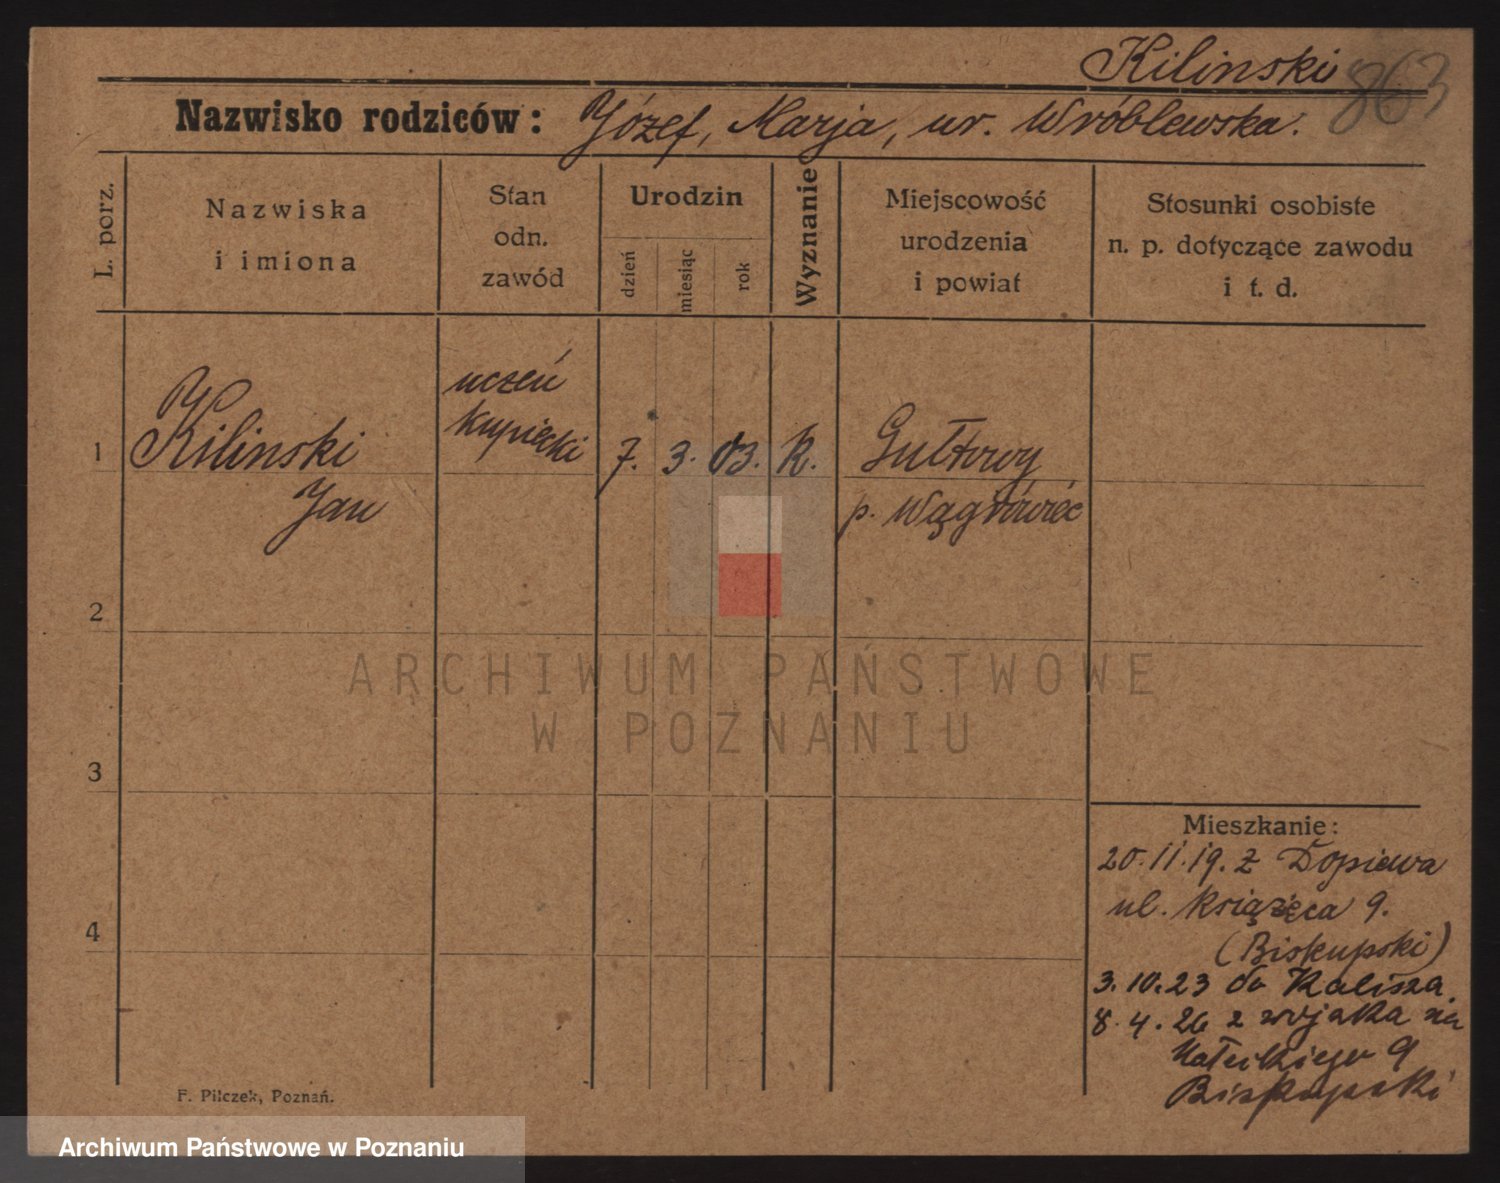 Kilinski 863
Nazwisko rodziców: Józef, Marja, ur. Wróblewska.
L. porz.
Nazwiska
i imiona
Stan
odn.
zawód
Urodzin
dzień
miesiąc
rok
Wyznanie
Miejscowość
urodzenia
i powiat
Stosunki osobiste
n. p. dotyczące zawodu
i t. d.
1
Kilinski
Jan
uczeń
kupiecki
7. 3. 03. K.
Gułtowy
p. Wągrówiec
2
3
4
ARCHIWUM PAŃSTWOWE
W POZNANIU
Mieszkanie:
20.11.19. z Dopiewa
ul. Książęca 9.
(Biskupski)
3.10.23 do Kalisza
8.4.26 z wojska na
9
Biskupski
F. Pilczek, Poznań.
Archiwum Państwowe w Poznaniu